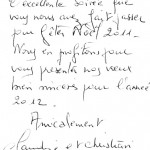 l'excellente soirée que
vous nous avez fait passer
pour fêter Noël 2011.
Nous en profitons pour
vous présenter nos vœux
bien sincères pour l'année
2012.
Amicalement
et Christian